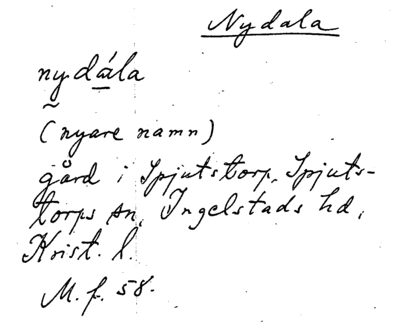 Nydala
nydála
~
(nyare namn)
gård i Spjutstorp, Spjuts-
torps sn, Ingelstads hd,
Krist. l.
M. f. 58.